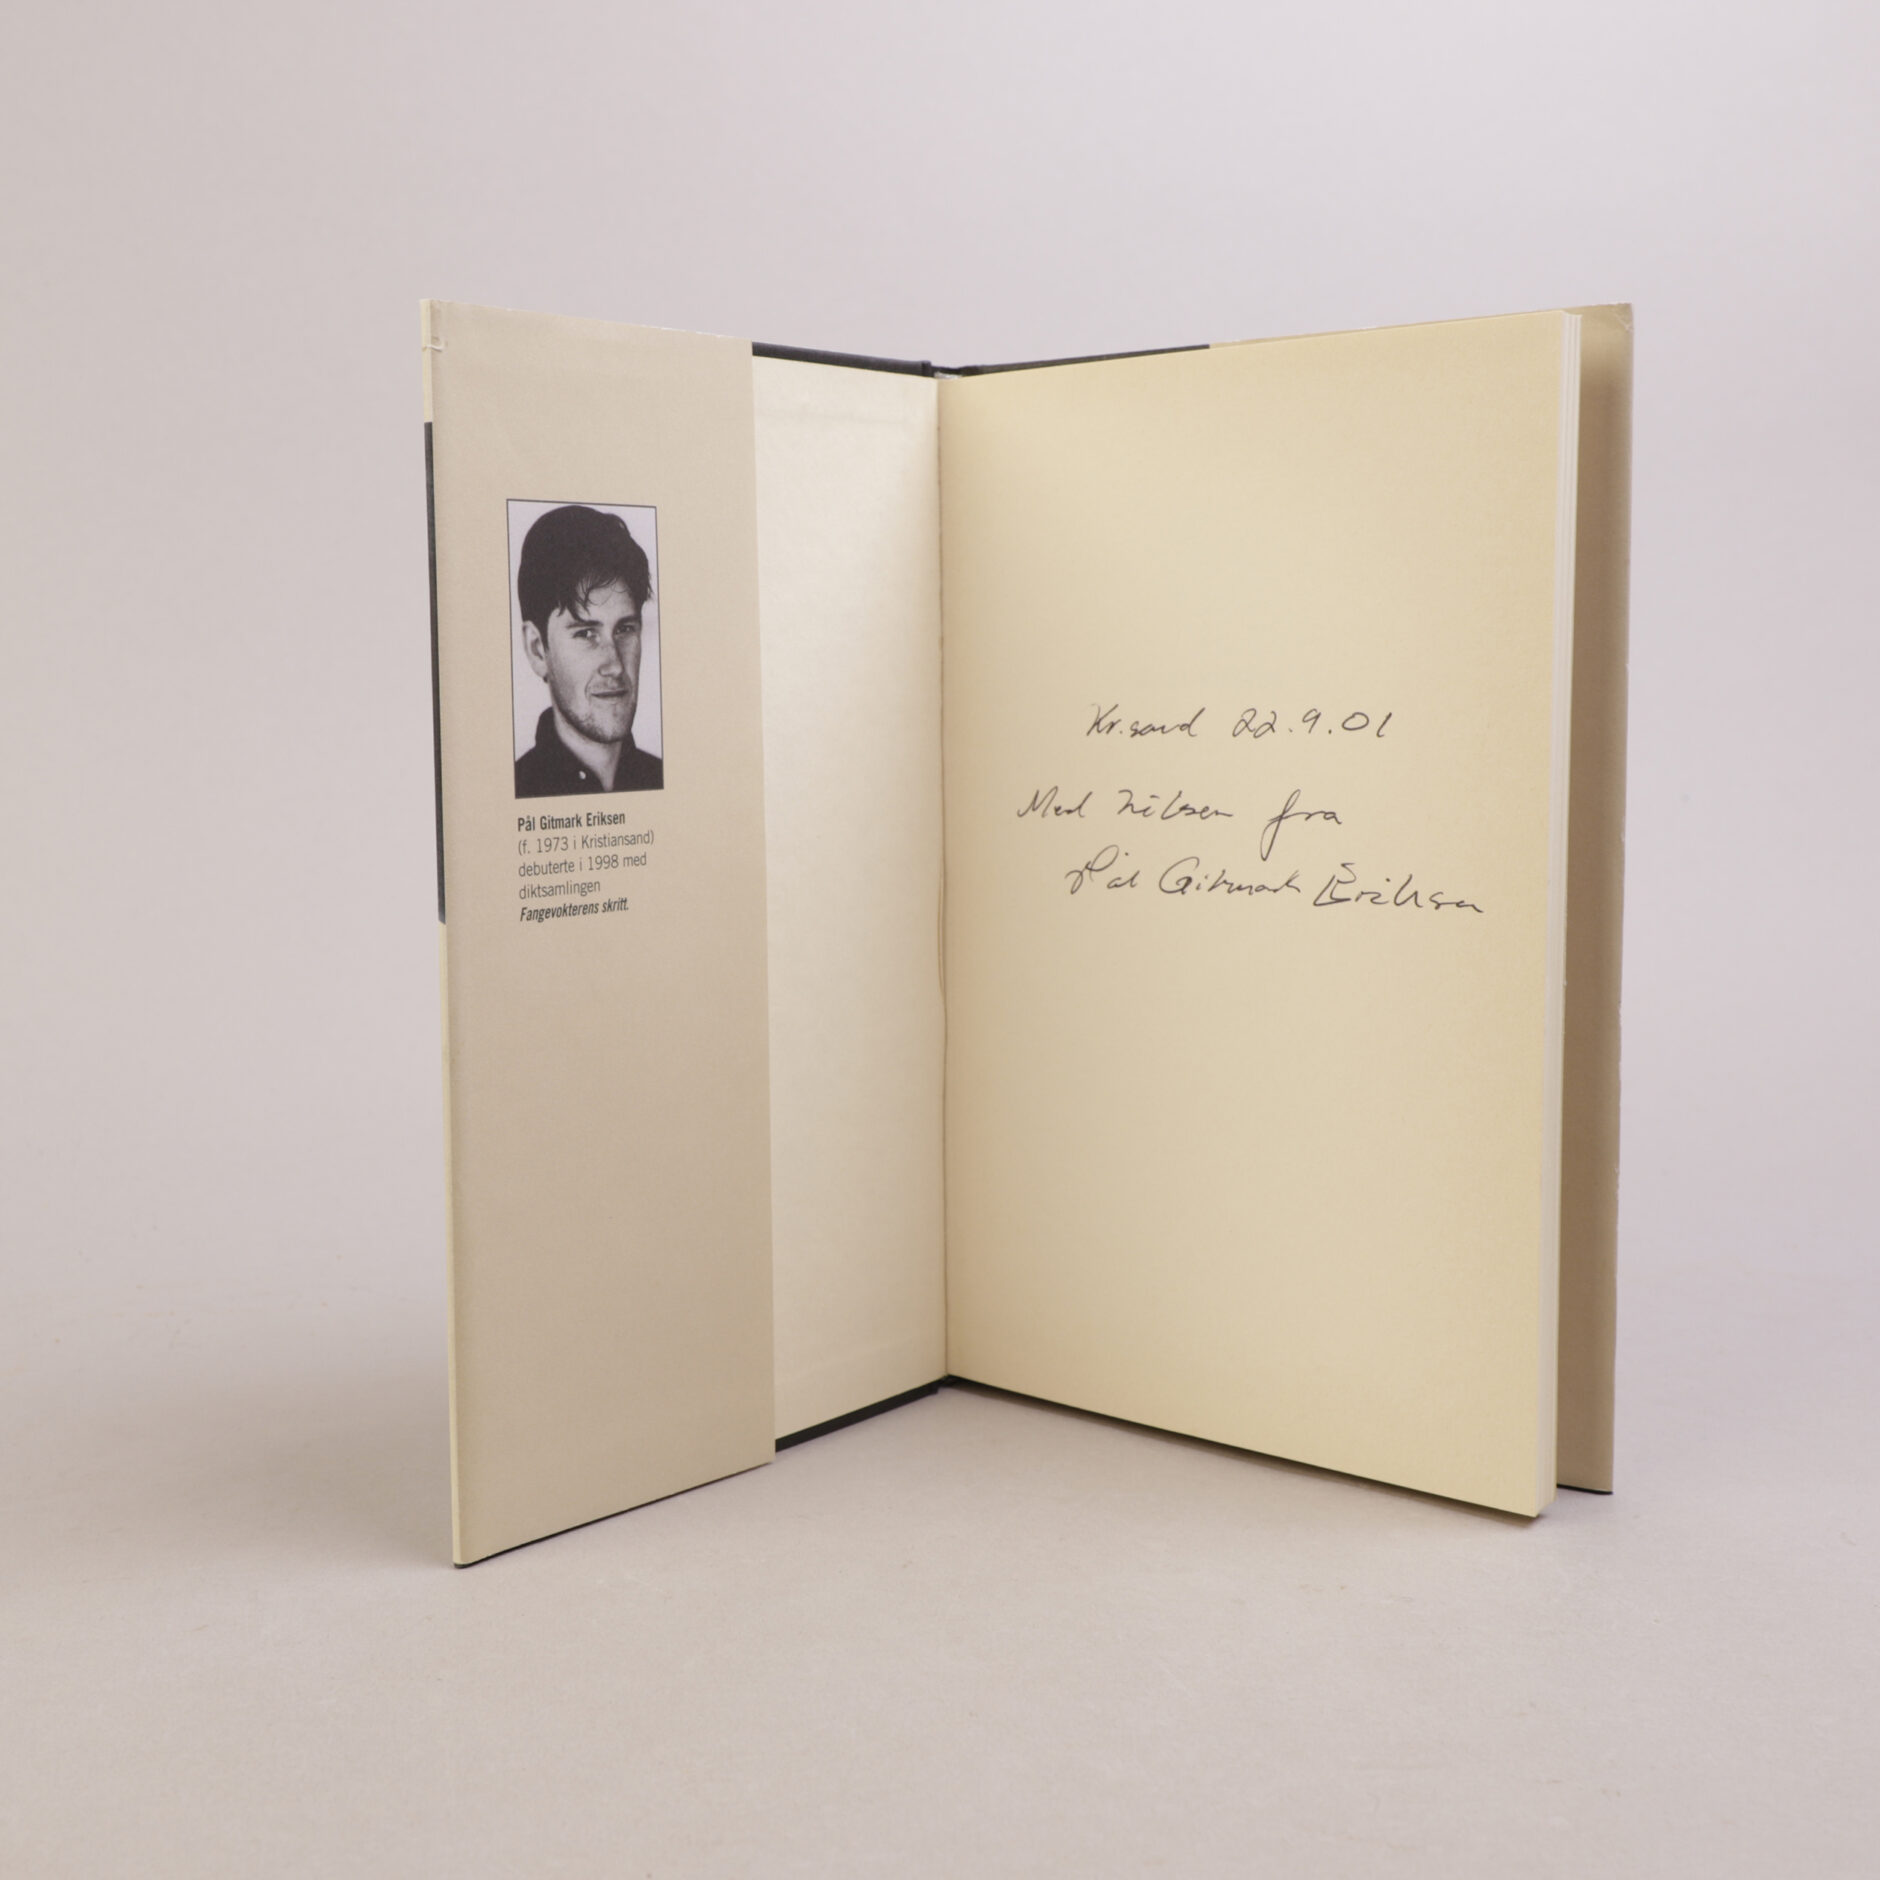 Pål Gitmark Eriksen
(f. 1973 i Kristiansand)
debuterte i 1998 med
diktsamlingen
Fangevokterens skritt.
Kr.sand 22.9.01
Med hilsen fra
Pål Gitmark Eriksen